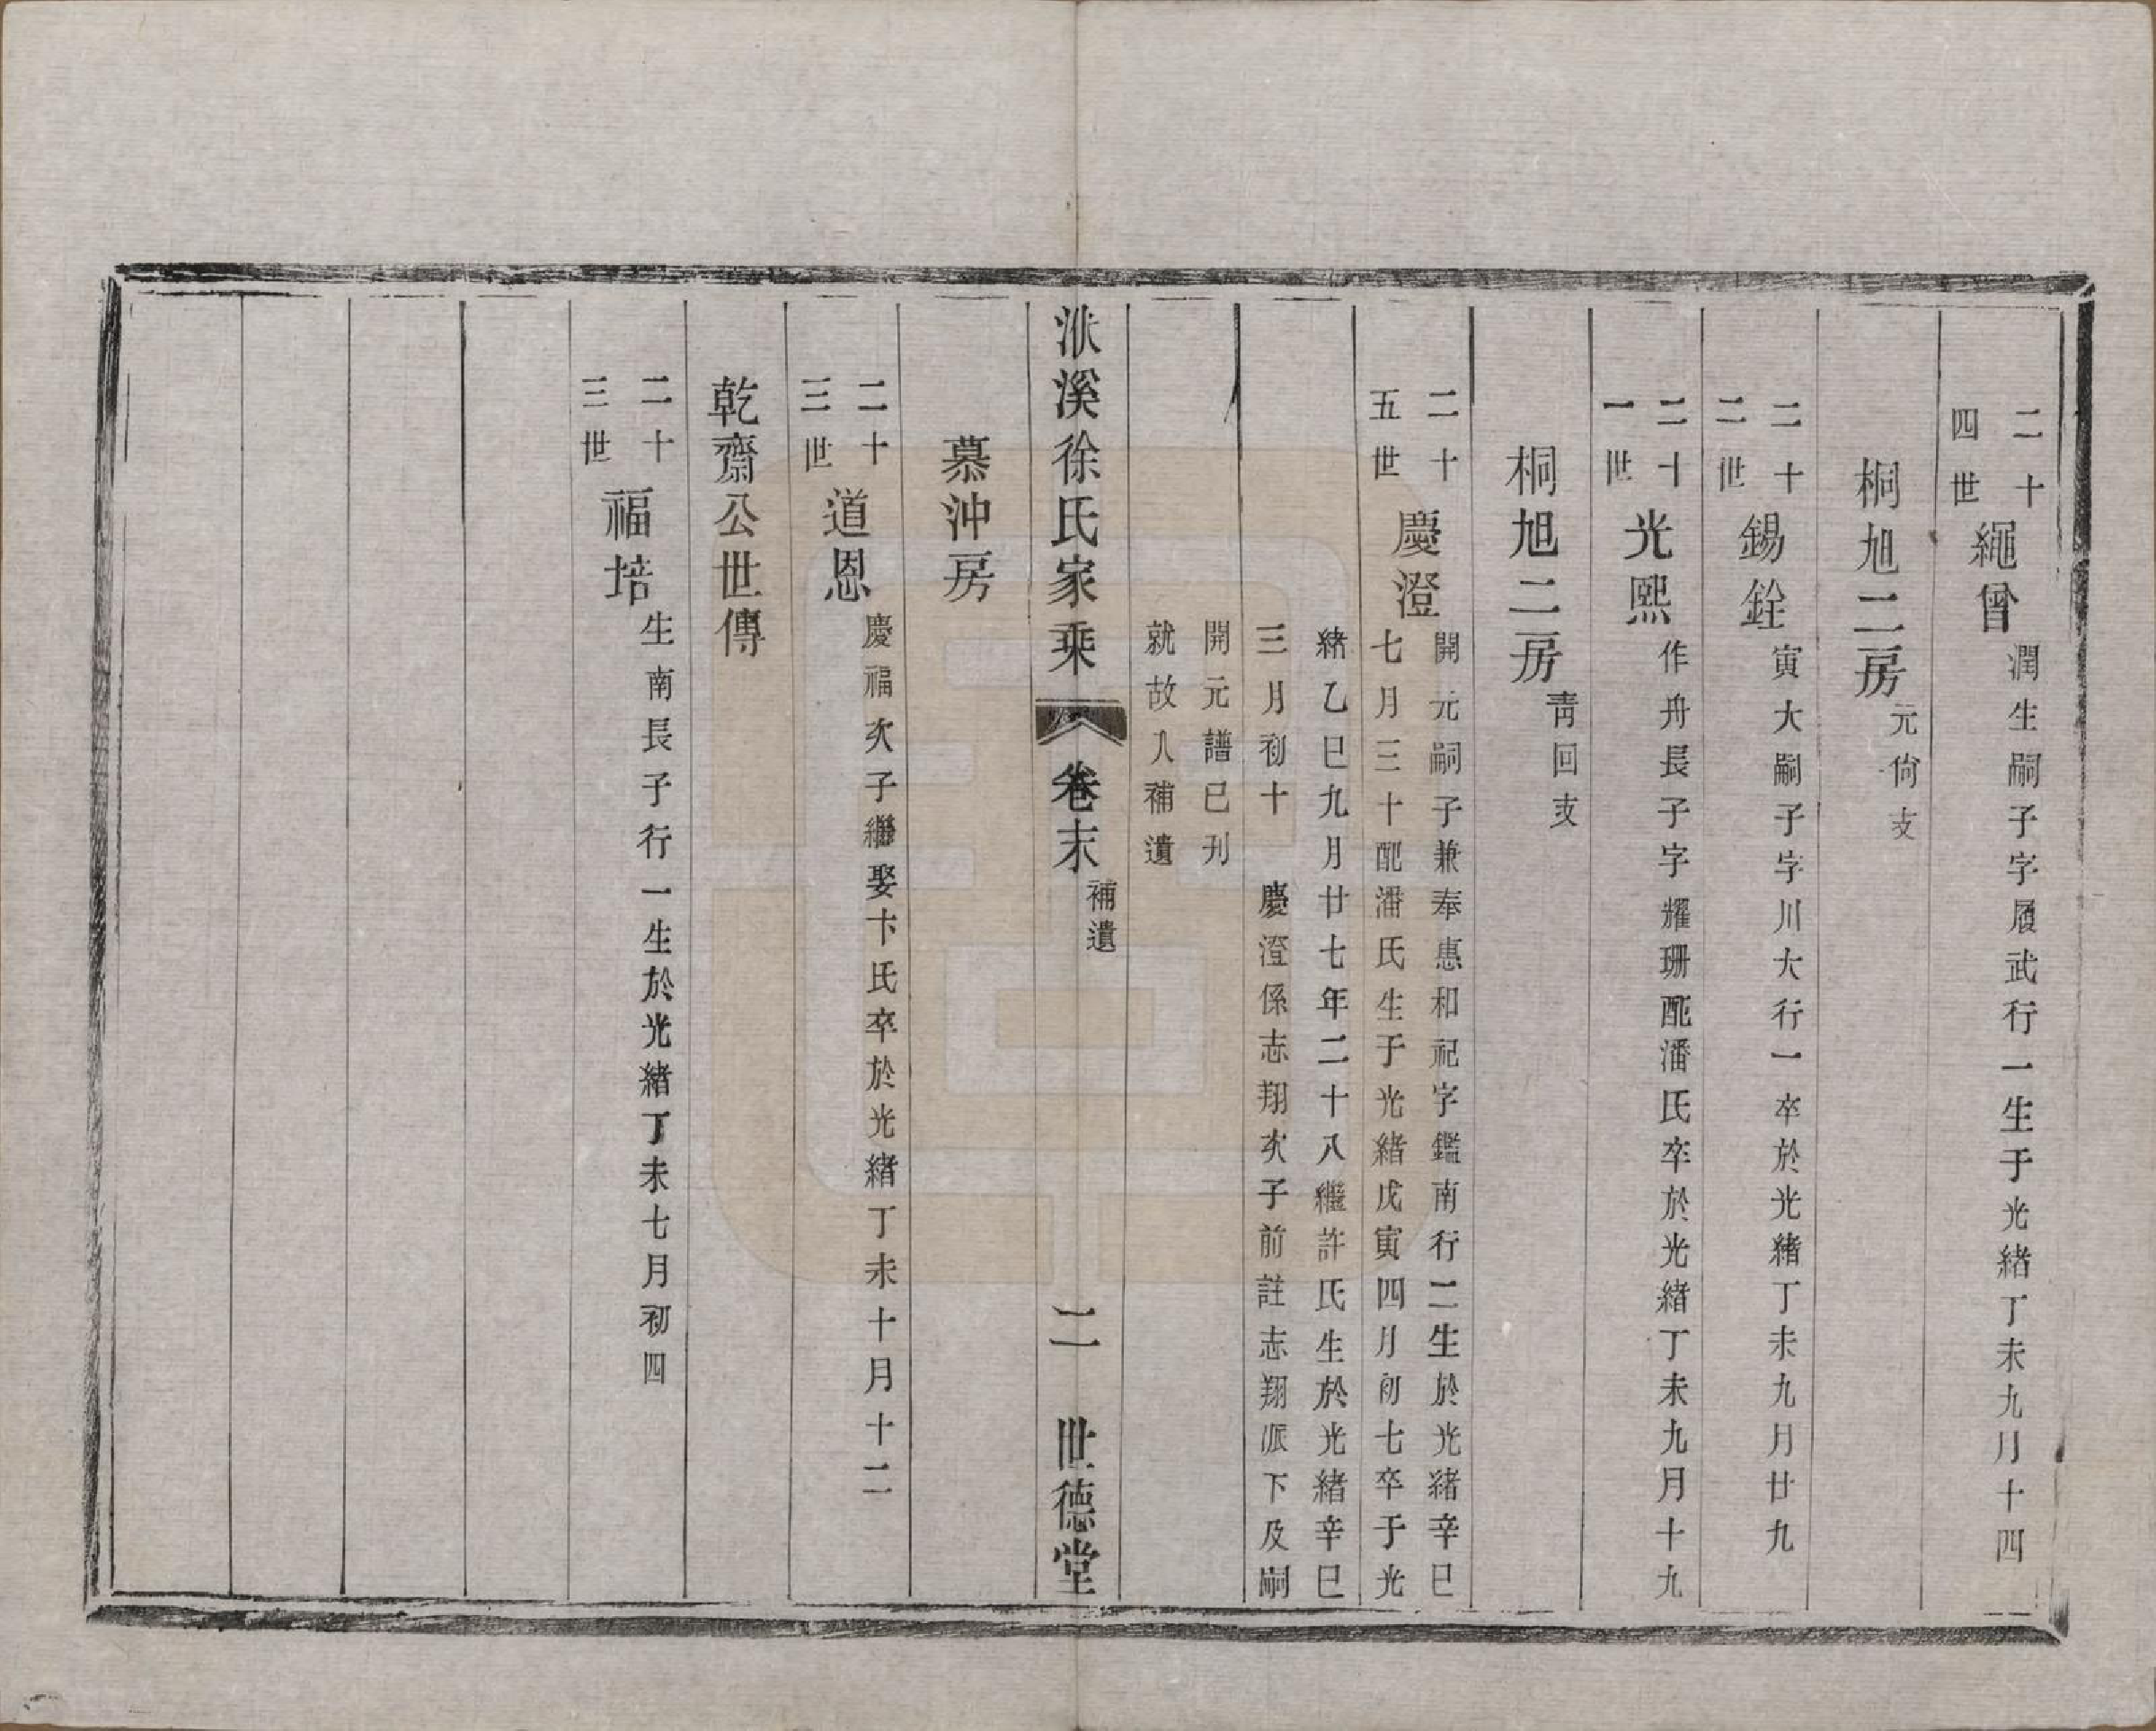 二十四世 繩曾 潤生嗣子字履武行一生于光緒丁未九月十四
桐旭二房 元尙支
二十二世 錫銓 寅大嗣子字川大行一卒於光緒丁未九月廿九
二十一世 光熙 作舟長子字耀珊配潘氏卒於光緒丁未九月十九
桐旭二房 靑回支
二十五世 慶澄 開元嗣子兼奉惠和祀字鑑南行二生於光緒辛巳
七月三十配潘氏生于光緒戊寅四月初七卒于光
緒乙巳九月廿七年二十八繼許氏生於光緒辛巳
三月初十 慶澄係志翔次子前註志翔派下及嗣
開元譜已刋
就故入補遺
洑溪徐氏家乘 卷末 補遺 二 世德堂
慕沖房
二十三世 道恩 慶福次子繼娶卞氏卒於光緒丁未十月十二
乾齋公世傳
二十三世 福培 生南長子行一生於光緒丁未七月初四